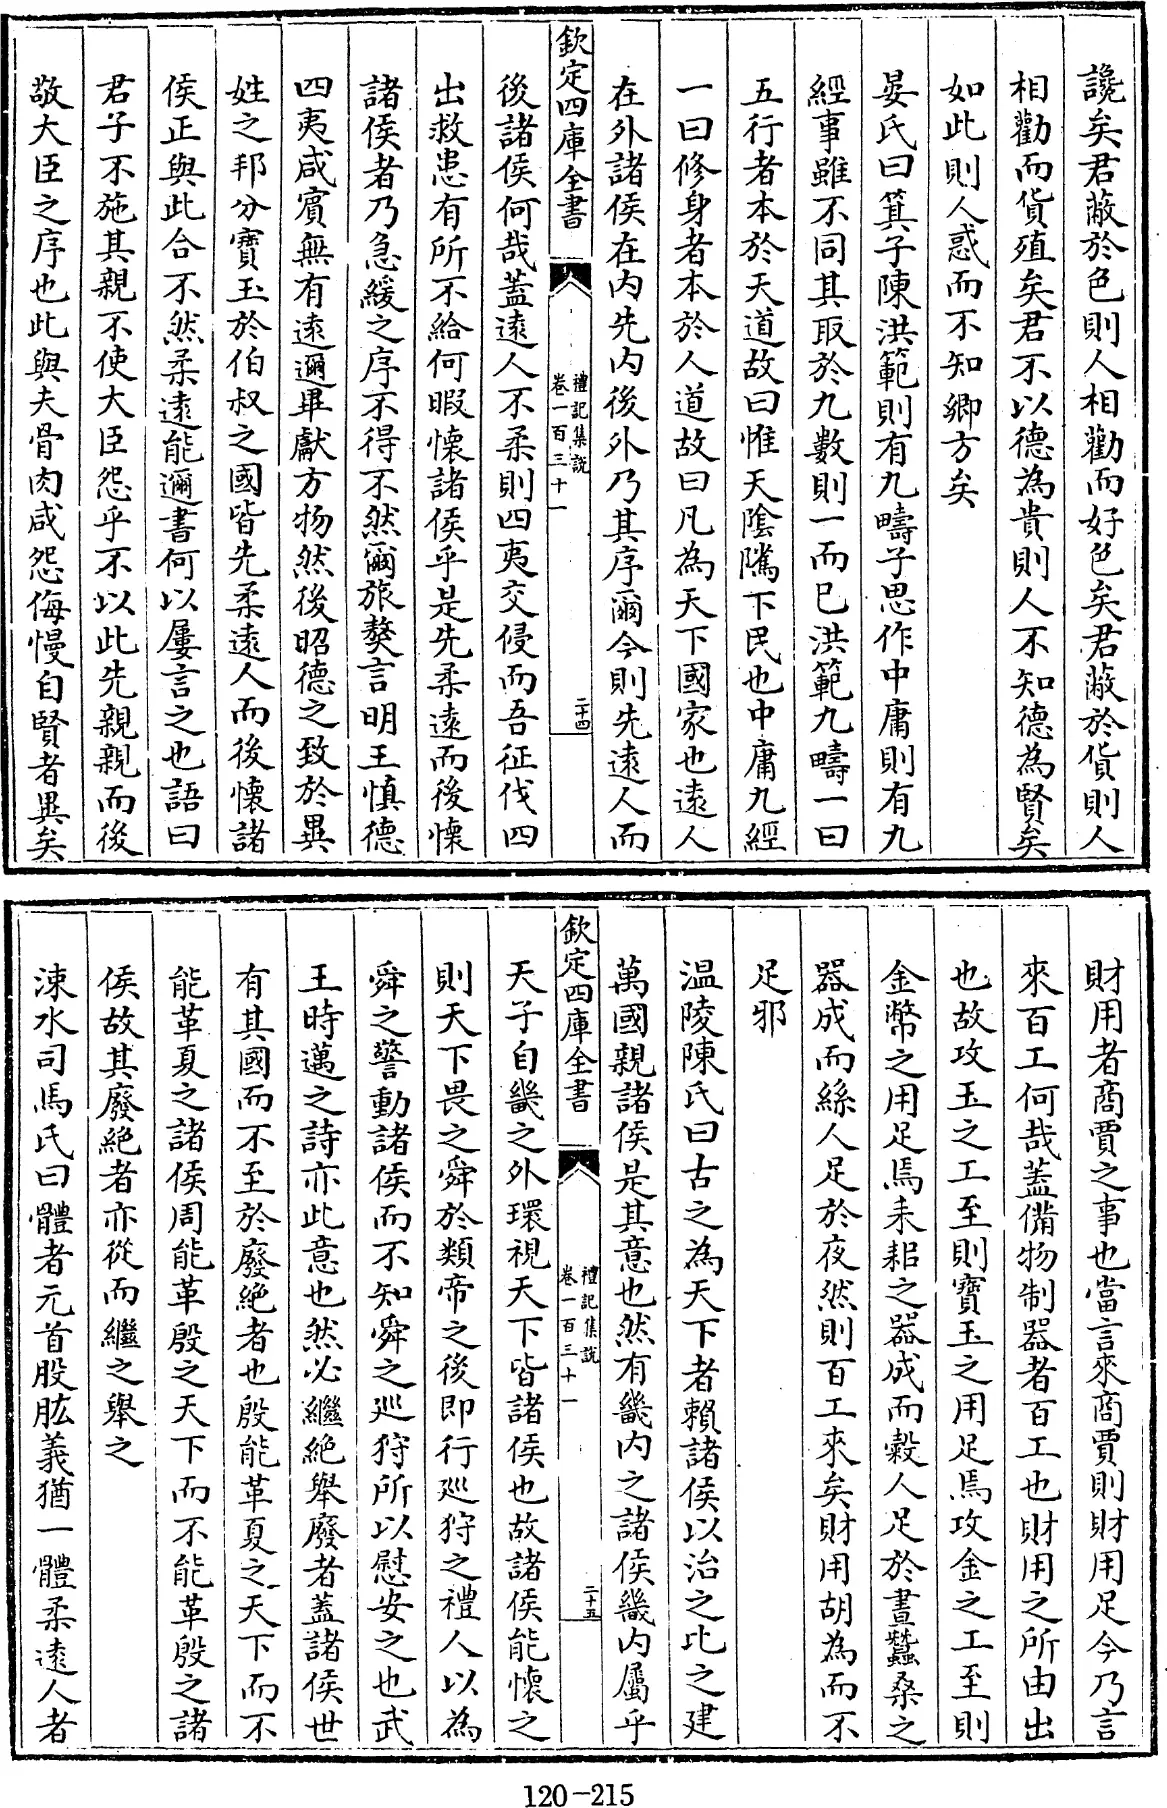 讒矣君蔽於色則人相勸而好色矣君蔽於貨則人
相勸而貨殖矣君不以德為貴則人不知德為賢矣
如此則人惑而不知鄉方矣
晏氏曰箕子陳洪範則有九疇子思作中庸則有九
經事雖不同其取於九數則一而已洪範九疇一曰
五行者本於天道故曰惟天陰騭下民也中庸九經
一曰修身者本於人道故曰凡為天下國家也遠人
在外諸侯在内先内後外乃其序爾今則先遠人而
欽定四庫全書
禮記集說
卷一百三十一
二十四
後諸侯何哉蓋遠人不柔則四夷交侵而吾征伐四
出救患有所不給何暇懷諸侯乎是先柔遠而後懷
諸侯者乃急緩之序不得不然爾旅獒言明王慎德
四夷咸賓無有遠邇畢獻方物然後昭德之致於異
姓之邦分寶玉於伯叔之國皆先柔遠人而後懷諸
侯正與此合不然柔遠能邇書何以屢言之也語曰
君子不施其親不使大臣怨乎不以此先親親而後
敬大臣之序也此與夫骨肉咸怨侮慢自賢者異矣
財用者商賈之事也當言來商賈則財用足今乃言
來百工何哉蓋備物制器者百工也財用之所由出
也故攻玉之工至則寶玉之用足焉攻金之工至則
金幣之用足焉耒耜之器成而穀人足於晝蠶桑之
器成而絲人足於夜然則百工來矣財用胡為而不
足邪
温陵陳氏曰古之為天下者賴諸侯以治之比之建
萬國親諸侯是其意也然有畿内之諸侯畿内屬乎
欽定四庫全書
禮記集說
卷一百三十一
二十五
天子自畿之外環視天下皆諸侯也故諸侯能懷之
則天下畏之舜於類帝之後即行巡狩之禮人以為
舜之警動諸侯而不知舜之巡狩所以慰安之也武
王時邁之詩亦此意也然必繼絶舉廢者蓋諸侯世
有其國而不至於廢絶者也殷能革夏之天下而不
能革夏之諸侯周能革殷之天下而不能革殷之諸
侯故其廢絶者亦從而繼之舉之
涑水司馬氏曰體者元首股肱義猶一體柔遠人者
120-215